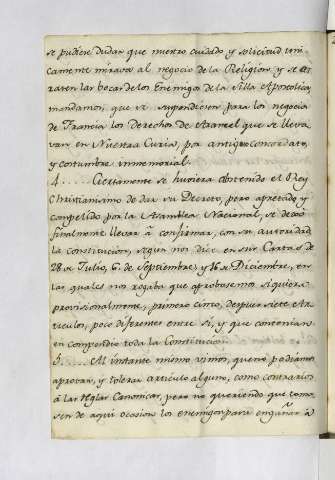 se pudiere dudar que nuestro cuidado y solicitud uni-
camente mirava al negocio de la Religion y se cer-
raren las bocas de los Enemigos de la Silla Apostolica
mandamos, que se suspendiesen para los negocios
de Francia los Derechos de Arancel que se lleva
van en Nuestra Curia, por antiguo Concordato,
y costumbre inmemorial.
4.... Ciertamente se huviera abstenido el Rey
Christianisimo de dar su Decreto, pero apretado y
conpelido por la Asamblea Nacional, se dexo
finalmente llevar à confirmar, con su autoridad
la constitucion, segun nos dice en sus Cartas de
28 de Julio, 6 de Septiembre, y 16 de Diciembre, en
las quales nos rogaba que aprobasemos siquiera
provisionalmente, primero cinco, despues siete Ar-
ticulos, poco diferentes entre sí, y que contenian
en compendio toda la Constitucion.
5.... Al instante mismo vimos, que no podiamos
aprobar, y tolerar articulo alguno, como contrarios
à las Reglas Canonicas, pero no queriendo que toma-
sen de aqui ocasion los enemigos para engañar à